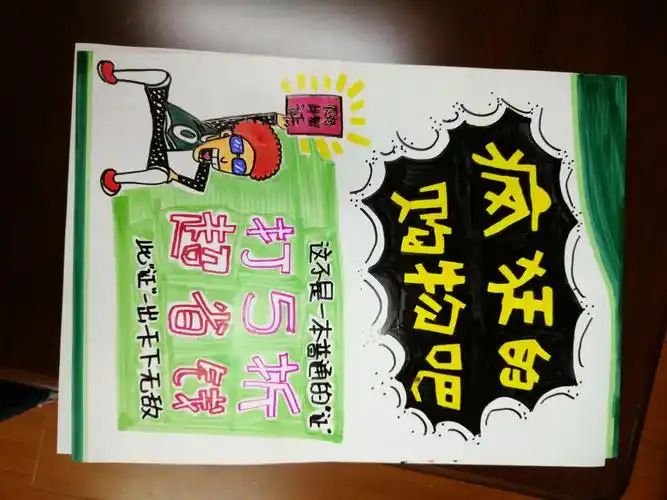 疯狂的
购物吧
这不是一本普通的“证”
打5折
超省钱
此“证”一出卡下无敌